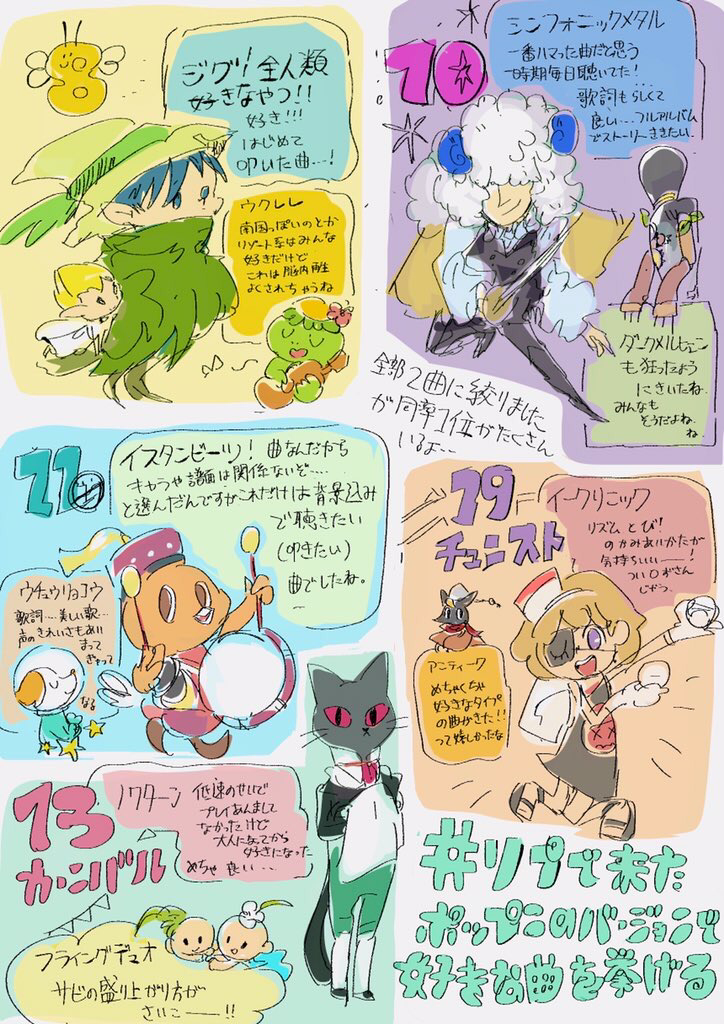 8
ジグ! 全人類
好きなやつ!!
好き!!!
はじめて
叩いた曲…!
ウクレレ
南国っぽいのとか
リゾート系はみんな
好きだけど
これは脳内再生
よくされちゃうね
10
シンフォニックメタル
一番ハマった曲だと思う
一時期毎日聴いてた!
歌詞もらしくて
良い…フルアルバム
でストーリーききたい.
ダークメルヒェン
も狂ったよう
にきいたね.
みんなも
そうだよね.
ね
全部2曲に絞りました
が同率1位がたくさん
いるよ…
11
イスタンビーツ! 曲なんだから
キャラや譜面は関係ないぞ…
と選んだんですがこれだけは背景込み
で聴きたい
(叩きたい)
曲でしたね。
ウチュウリョコウ
歌詞…美しい歌…
声のきれいさもあい
まって
きゃって
なる
19
チュニスト
イークリニック
リズムとぴ!
のかみあいかたが
気持ちいいーー!
つい〇おさん
じゃう.
アニティーク
めちゃくちゃ
好きなタイプ
の曲がきた!!
って嬉しかったな
13
カーニバル
ノクターン
低速のせいで
プレイあんまし
なかったけど
大人になってから
好きになった
めちゃ良い…
フライングデュオ
サビの盛り上がり方が
さいこーー!!
#リプで来た
ポップンのバージョンで
好きな曲を挙げる